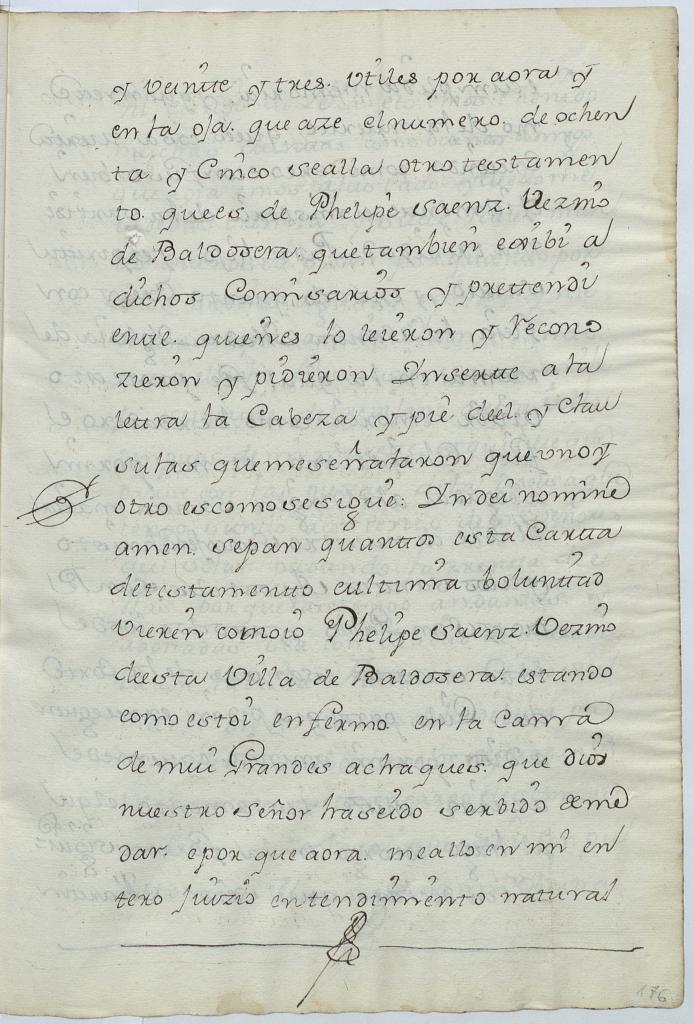 y veintte y tres. Utiles por aora y
en la oja. que aze el numero. de ochen
ta y Cinco se alla otro testamen
to. que es. de Phelipe saenz. Vezino
de Baldosera. que tambien exibi a
dichos Comisarios y prettendi
ente. quienes lo leieron y Recono
zieron y pidieron Insertte a la
letra la Cabeza y pie de el. y Clau
sulas que me señalaron que uno y
otro es como se sigue: In dei nomine
amen. sepan quanttos esta Cartta
de testamentto e ultima boluntad
vieren como io Phelipe saenz. Vezino
de esta Villa de Baldosera. estando
como estoi enfermo en la Cama
de mui Grandes achaques. que dios
nuestro señor ha seido serbido de me
dar. e por que aora. me allo en mi en
tero Juizio entendimiento natural
176